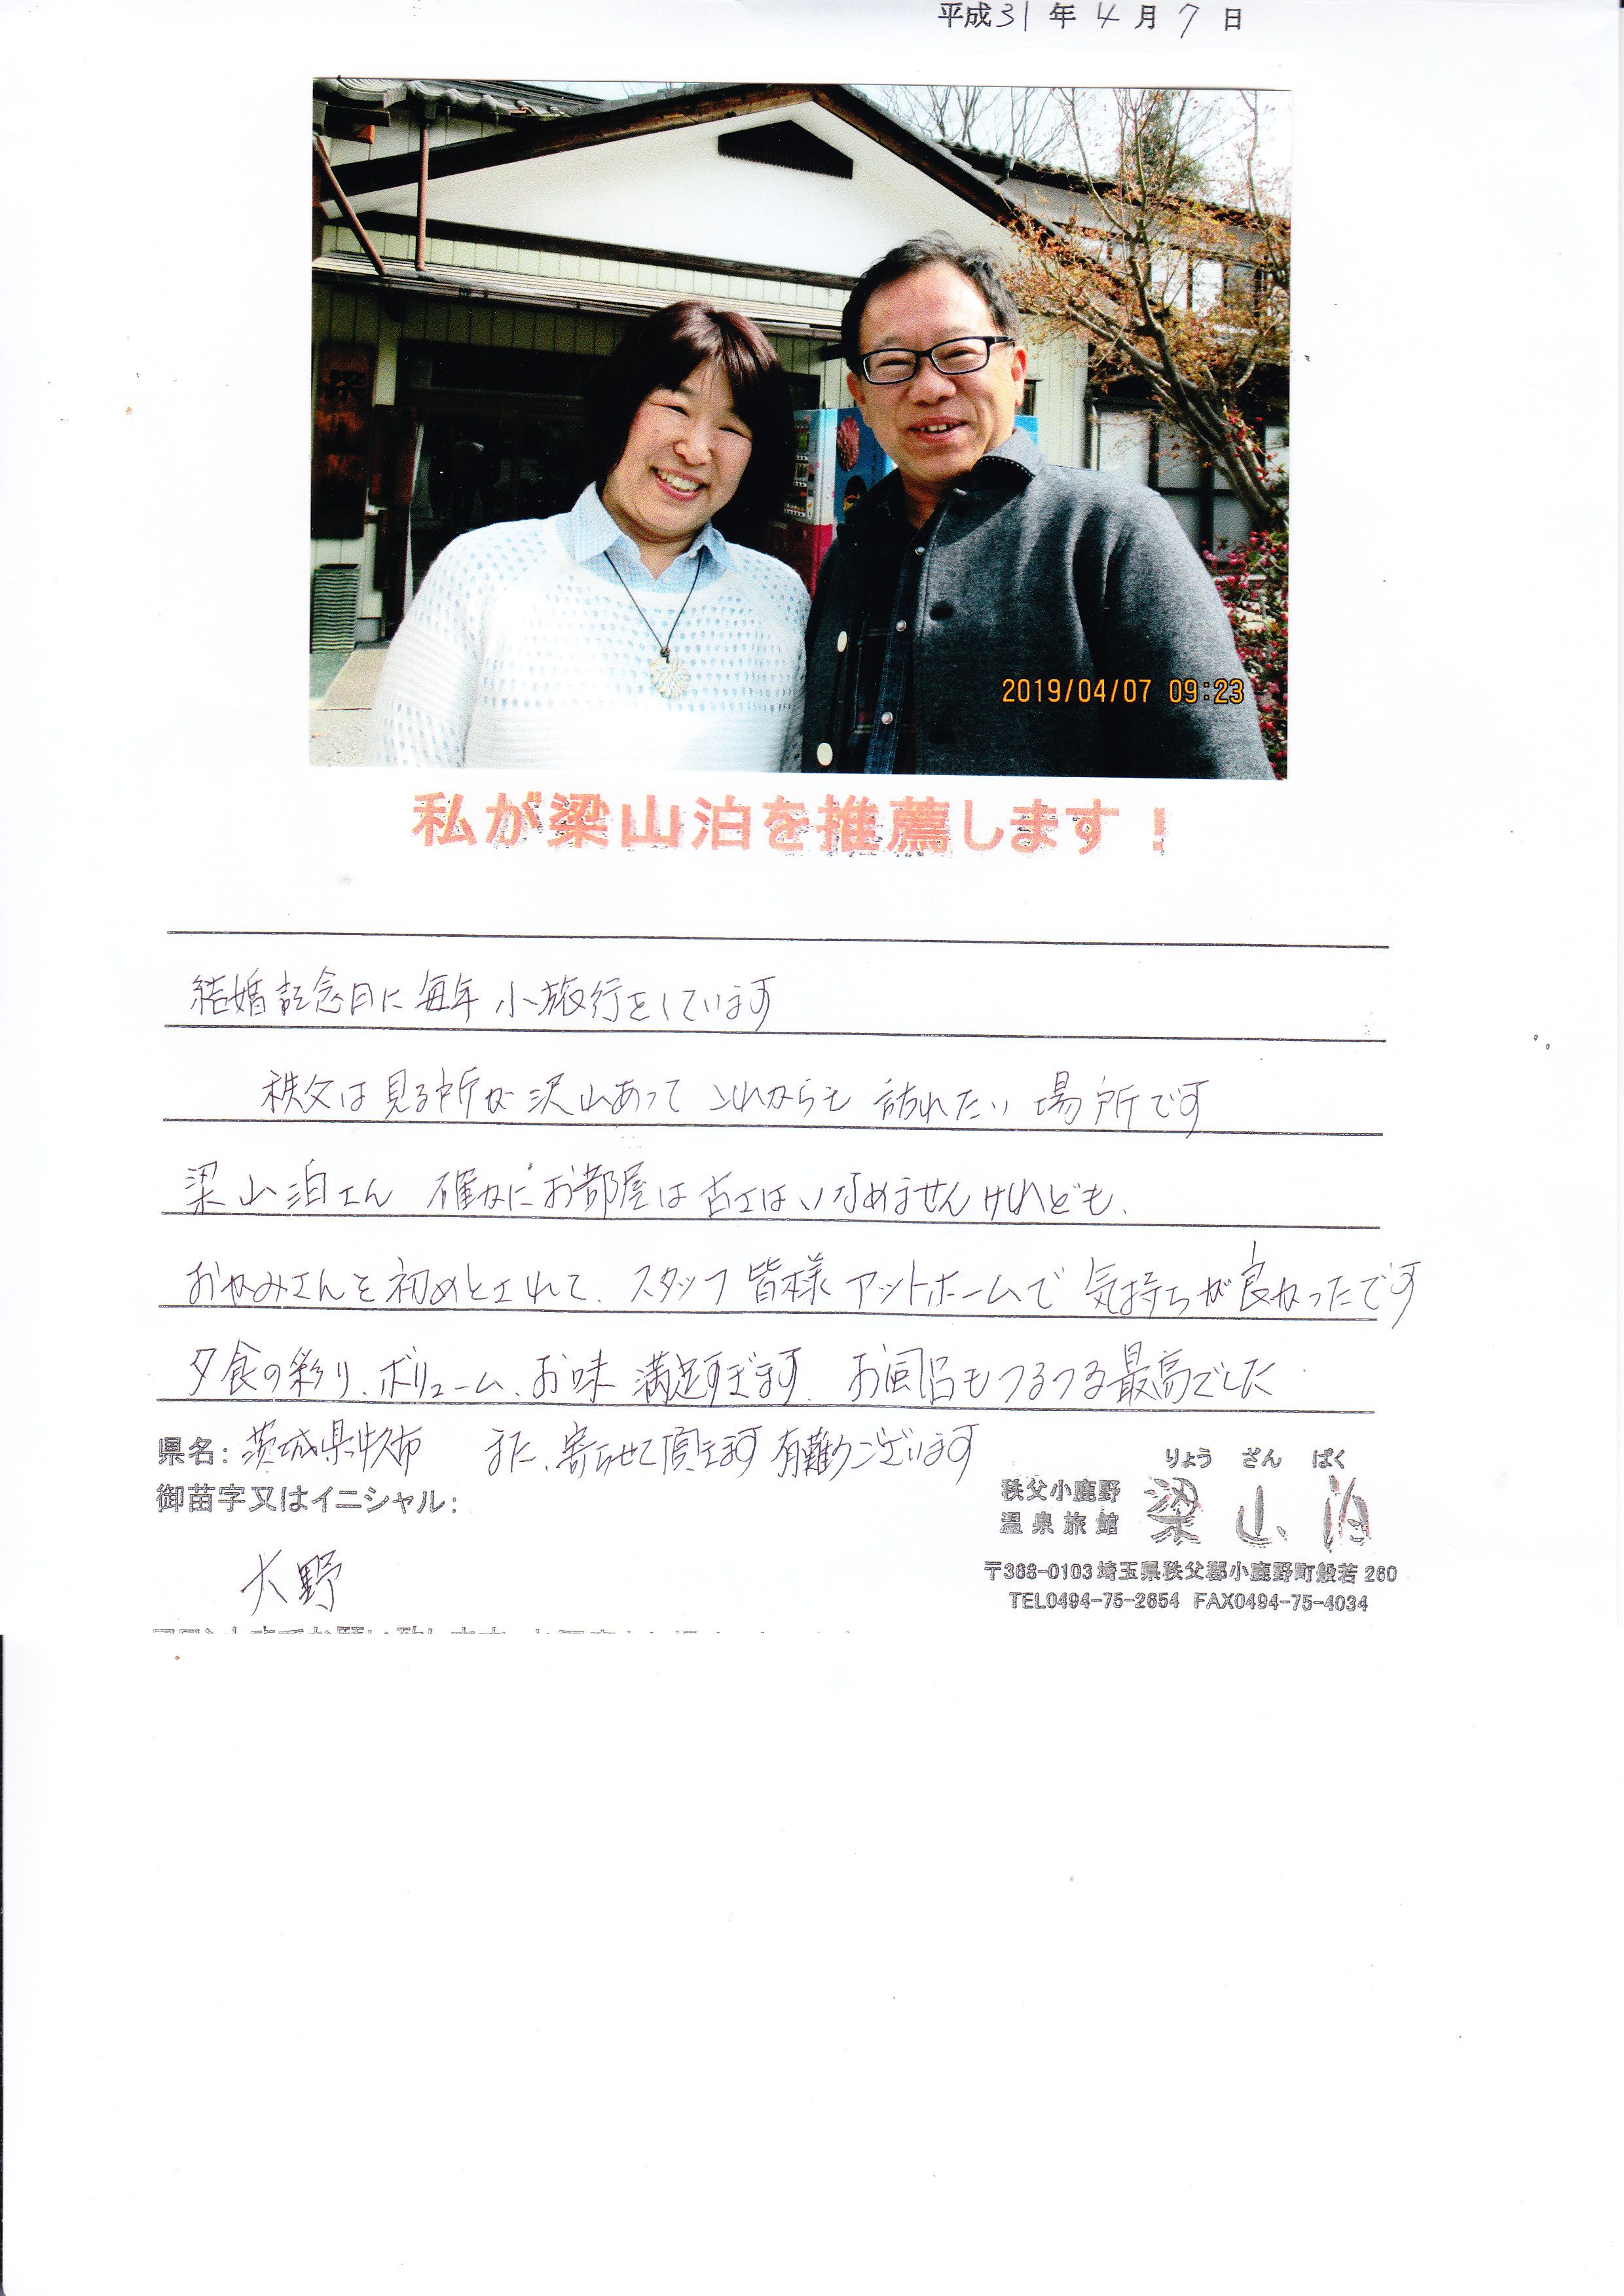 平成31年4月7日
2019/04/07 09:23
私が梁山泊を推薦します！
結婚記念日に毎年 小旅行をしています
秩父は見る所が沢山あって これからも 訪れたい 場所です
梁山泊さん 確かにお部屋は古さはいなめませんけれども、
おかみさんを初めとされて、スタッフ皆様 アットホームで 気持ちが良かったです
夕食の彩り、ボリューム、お味 満足すぎます。お風呂もつるつる最高でした
県名：茨城県牛久市 また、寄らせて頂きます 有難うございます
御苗字又はイニシャル：
大野
りょう ざん ぱく
秩父小鹿野
温泉旅館 梁山泊
〒368-0103 埼玉県秩父郡小鹿野町般若260
TEL0494-75-2654 FAX0494-75-4034